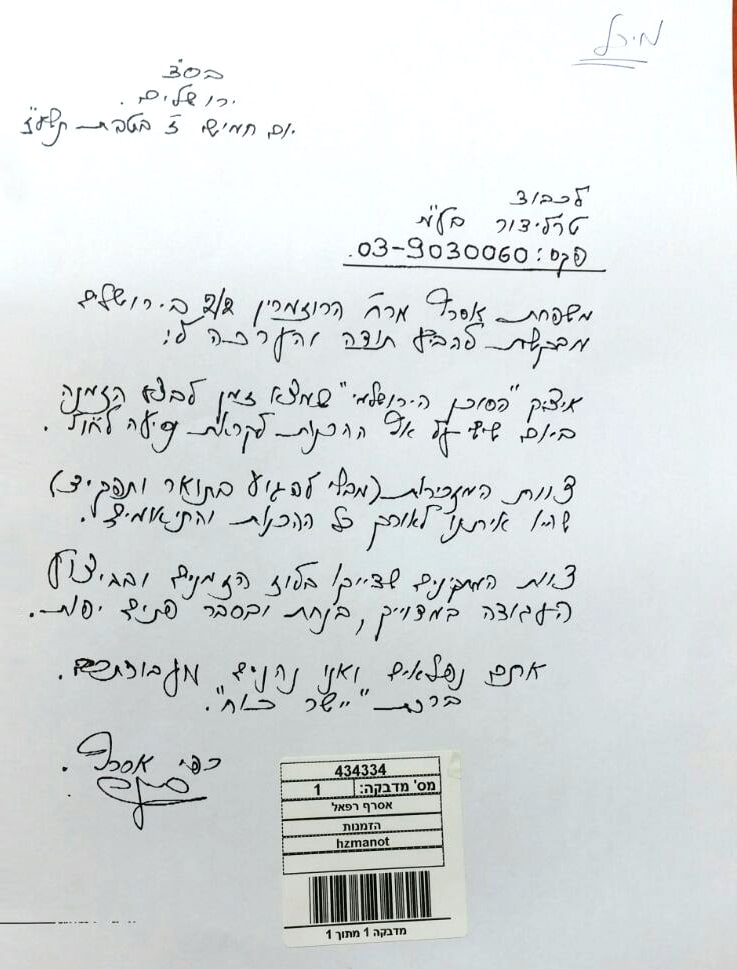 מירל
בס"ד
ירושלים.
יום חמישי ז' בטבת תשע"ז
לכבוד
טרלידור בע"מ
פקס: 03-9030060.
משפחת אסרף מרח' הרוזמרין 2/2 בירושלים
מבקשת להביע תודה והערכה ל:
איציק "הסוכן הירושלמי" שמצא זמן לבצע הזמנה
ביום שישי על אף ההכנות לקראת נסיעה לחו"ל.
צוות המזכירות (מבלי להגיע בתואר ותפקיד)
שהיו איתנו לאורך כל ההכנות והתיאומים.
צוות המתקינים שדייקו בלוז הזמנים ובביצוע
העבודה במדוייק, בנחת ובסבר פנים יפות.
אתם נפלאים ואנו נהנים מעבודתכם.
ברכת "יישר כוח".
רפי אסרף.
434334
מס' מדבקה: 1
אסרף רפאל
הזמנות
hzmanot
מדבקה 1 מתוך 1